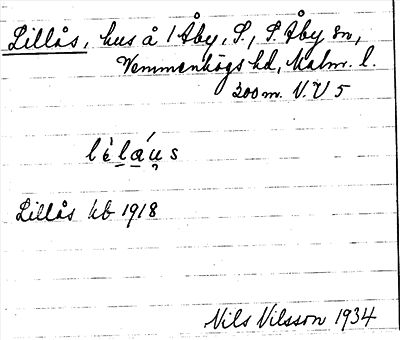 Lillås, hus å 1 Åby, S., S. Åby sn,
Vemmenhögs hd, Malm. l.
300 m. V.V 5
lὶláu̯s
Lillås kb 1918
Nils Nilsson 1934